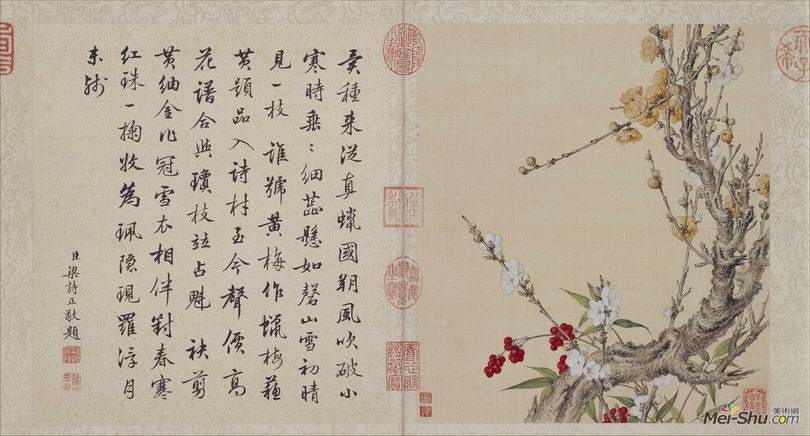 異種来從真蠟國朔風吹破小
寒時垂〻細蕊懸如磬山雪初晴
見一枝 誰號黃梅作蠟梅蘓
黃題品入詩材至今聲價高
花譜合與瓊枝竝占魁 袂剪
黃紬金作冠雪衣相伴對春寒
紅珠一掬收為珮隱現羅浮月
未殘
臣梁詩正敬題
美術網
Mei-Shu.com